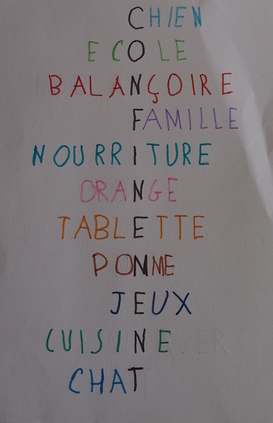 CHIEN
ECOLE
BALANÇOIRE
FAMILLE
NOURRITURE
ORANGE
TABLETTE
PONME
JEUX
CUISINE
CHAT